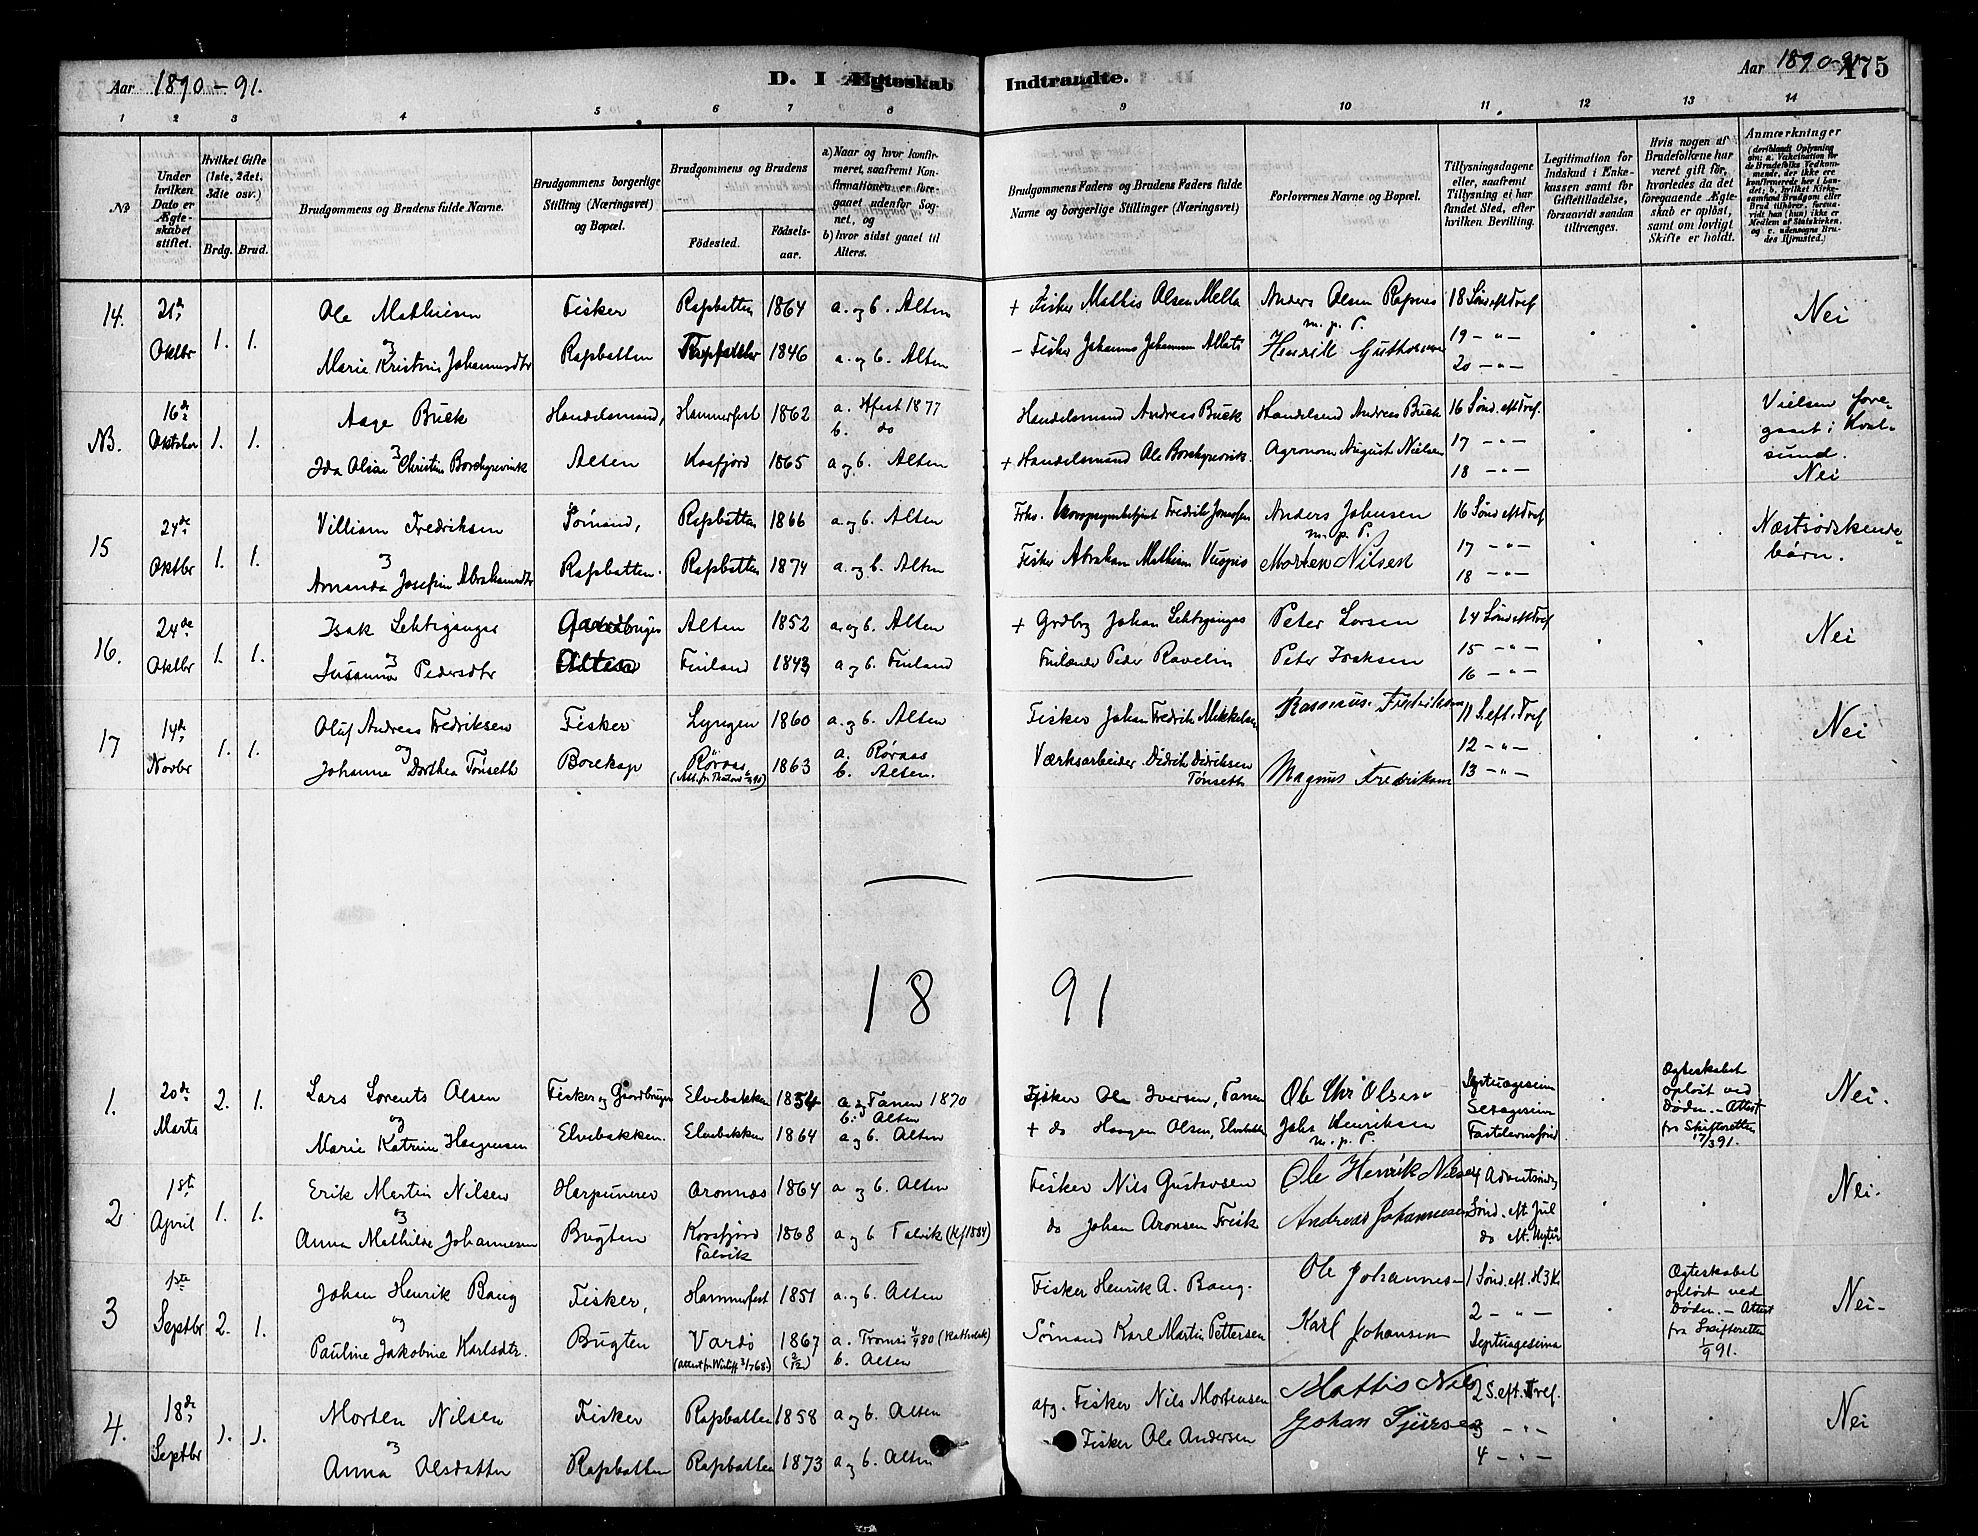 Aar 1890-91.
D. I Ægteskab Indtraadte.
Aar 1890-91 175
1 2 3 4 5 6 7 8 9 10 11 12 13 14
No
Under hvilken Dato er Ægteskabet stiftet.
Hvilket Gifte (1ste, 2det, 3die osv.)
Brdg. Brud.
Brudgommens og Brudens fulde Navne.
Brudgommens borgerlige Stilling (Næringsvei) og Bopæl.
Brudgommens og Brudens
Fødested. Fødselsaar.
a) Naar og hvor konfirmeret, saafremt Konfirmationen er foregaaet udenfor Sognet, og
b) hvor sidst gaaet til Alters.
Brudgommens Faders og Brudens Faders fulde Navne og borgerlige Stillinger (Næringsvei)
Forlovernes Navne og Bopæl.
Tillysningsdagene eller, saafremt Tillysning ei har fundet Sted, efter hvilken Bevilling.
Legitimation for Indskud i Enkekassen samt for Giftetilladelse, forsaavidt saadan tiltrænges.
Hvis nogen af Brudefolkene har været gift før, hvorledes da det foregaaende Ægteskab er opløst, samt om lovligt Skifte er holdt.
Anmærkninger (deriblandt Oplysning om: a. Vakcination for de Brudefolks Vedkommende, der ikke ere konfirmerede her i Landet; b. hvilket Kirkesamfund Brudgom eller Brud tilhører, forsaavidt han (hun) ikke er Medlem af Statskirken, og c. udensogns Brudes Hjemsted.)
14. 21de Oktbr 1. 1. Ole Mathisen Fisker Rafsbotten 1864 a. og b. Alten + Fisker Mathis Olsen Mella Anders Olsen Rafsnes m. p. P. 18 Sønd eft Tref Nei
og Marie Kristine Johannesdtr Rafsbotten 1846 a. og b. Alten - Fisker Johannes Johannesen Henrik 19 - " -
20 - " -
NB. 16de Oktober 1. 1. Aage Buck Handelsmand, Hammerfest 1862 a. Hfest 1877 b. do Handelsmand Andreas Buck Handelsmd Andreas Buck 16 Sønd. eft Tref. Vielsen foregaaet i Kvalsund.
og Ida Christine Borchgrevink Alten Kaafjord 1865 a og b. Alten + Handelsmand Ole Borchgrevink. Agronom August Nielsen 17 - " -
18 - " - Nei
15 24de Oktbr 1. 1. Villiam Fredriksen Sømand, Rafsbotten 1866 a og b. Alten Anders Johnsen m. p. P. 16 Sønd eft Tref Næstsødskendebørn.
og Amanda Josefine Abrahamsdtr Rafsbotten. Rafsbotten 1874 a. og b. Alten Fisker Abraham Mathisen Morten Nilsen 17 - " -
18 - " -
16. 24de Oktbr 1. 1. Isak Lehtiganger Gaardbruger Alten 1852 a. og b. Alten + Grdbrg Johan Peter Larsen 14 Sønd eft Tref Nei
og Susanna Pedersdtr Alten Finland 1843 a og b. Finland Finlænder Peder Ravelin Peter Isaksen 15 - " -
16 - " -
17 14de Novbr 1. 1. Oluf Andreas Fredriksen Fisker Lyngen 1860 a. og b. Alten Fisker Johan Fredrik Mikkelsen Rasmus Fredriksen 11 S. eft. Tref Nei
og Johanna Dorthea Tønseth Borekop Røraas 1863 a. Røraas b. Alten. Værksarbeider Didrik Didriksen Tønseth Magnus Fredriksen 12 - " -
13 - " -
18 91
1. 20de Marts 2. 1. Lars Lorents Olsen Fisker og Gaardbruger Elvebakken 1854 a. Tanen 1870 b. Alten Fisker Ole Iversen, Tanen Ole Chr Olsen Septuagesim Ægteskabet opløst ved Døden. - Attest fra Skifteretten 17/3 91. Nei.
og Marie Katrine Haagensen Elvebakken. Elvebakken 1864 a og b. Alten + do Haagen Olsen, Elvebakken Johs Henriksen m. p. P. Sexagesim
Fastelavnssønd
2 1ste April 1. 1. Erik Martin Nilsen Harpunerer Aronnæs 1864 a og b. Alten Fisker Nils Gustavsen Ole Henrik Nilsen 4 Adventsøndg Nei.
og Anna Mathilde Johannesen Bugten Korsfjord Talvik 1868 a og b Talvik (Kf 1884) do Johan Aronsen Frisk Andreas Johannesen Sønd. eft Jul
do eft. Nytår
3 1ste Septbr 2. 1. Johan Henrik Bang Fisker, Hammerfest 1851 a. og b. Alten Fisker Henrik A. Bang. Ole Johannes- 1 Sønd. eft. H3K. Ægteskabet opløst ved Døden. - Attest fra Skifteretten 1/9 91. Nei-
og Pauline Jakobine Karlsdtr. Bugten Vardø 1867 a. Tromsø b. Alten Sømand Karl Martin Pettersen Karl Johansen 2 - " -
Septuagesima
4. 18de Septbr 1. 1. Morten Nilsen Fisker Rafsbotten 1858 a og b. Alten afg. Fisker Nils Mortensen Mattis Nils 2 S. eft. Tref. Nei
og Anna Olsdatter Rafsbotten Rafsbotten 1873 a og b. Alten Fisker Ole Andersen Johan 3 - " -
4 - " -